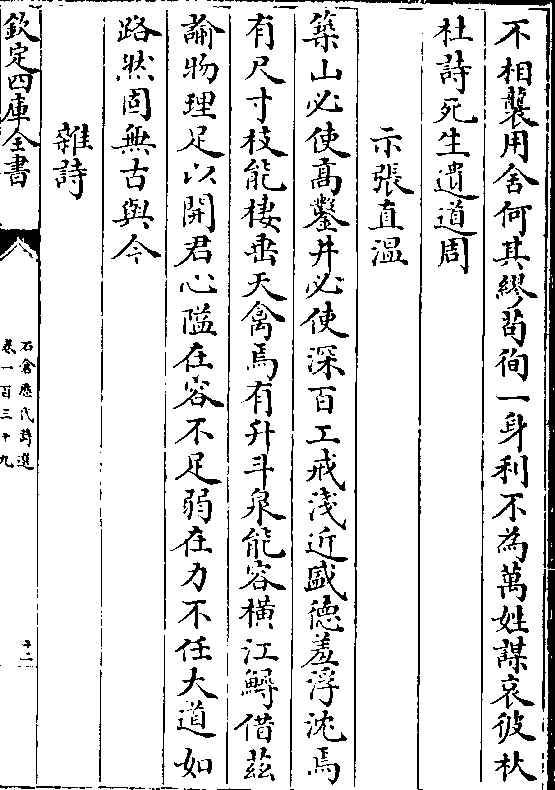 不相襲用舍何其繆苟徇一身利不為萬姓謀哀彼杕
杜詩死生遺道周
示張直溫
築山必使高鑿井必使深百工戒淺近盛德羞浮沈焉
有尺寸枝能棲垂天禽焉有升斗泉能容橫江鱘借茲
論物理足以開君心隘在容不足弱在力不任大道如
路然固無古與今
雜詩
欽定四庫全書
石倉歷代詩選
卷一百三十九
十二